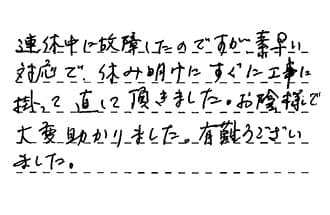 連休中に故障したのですが素早い
対応で、休み明けにすぐに工事に
掛って直して頂きました。お陰様で
大変助かりました。有難うござい
ました。